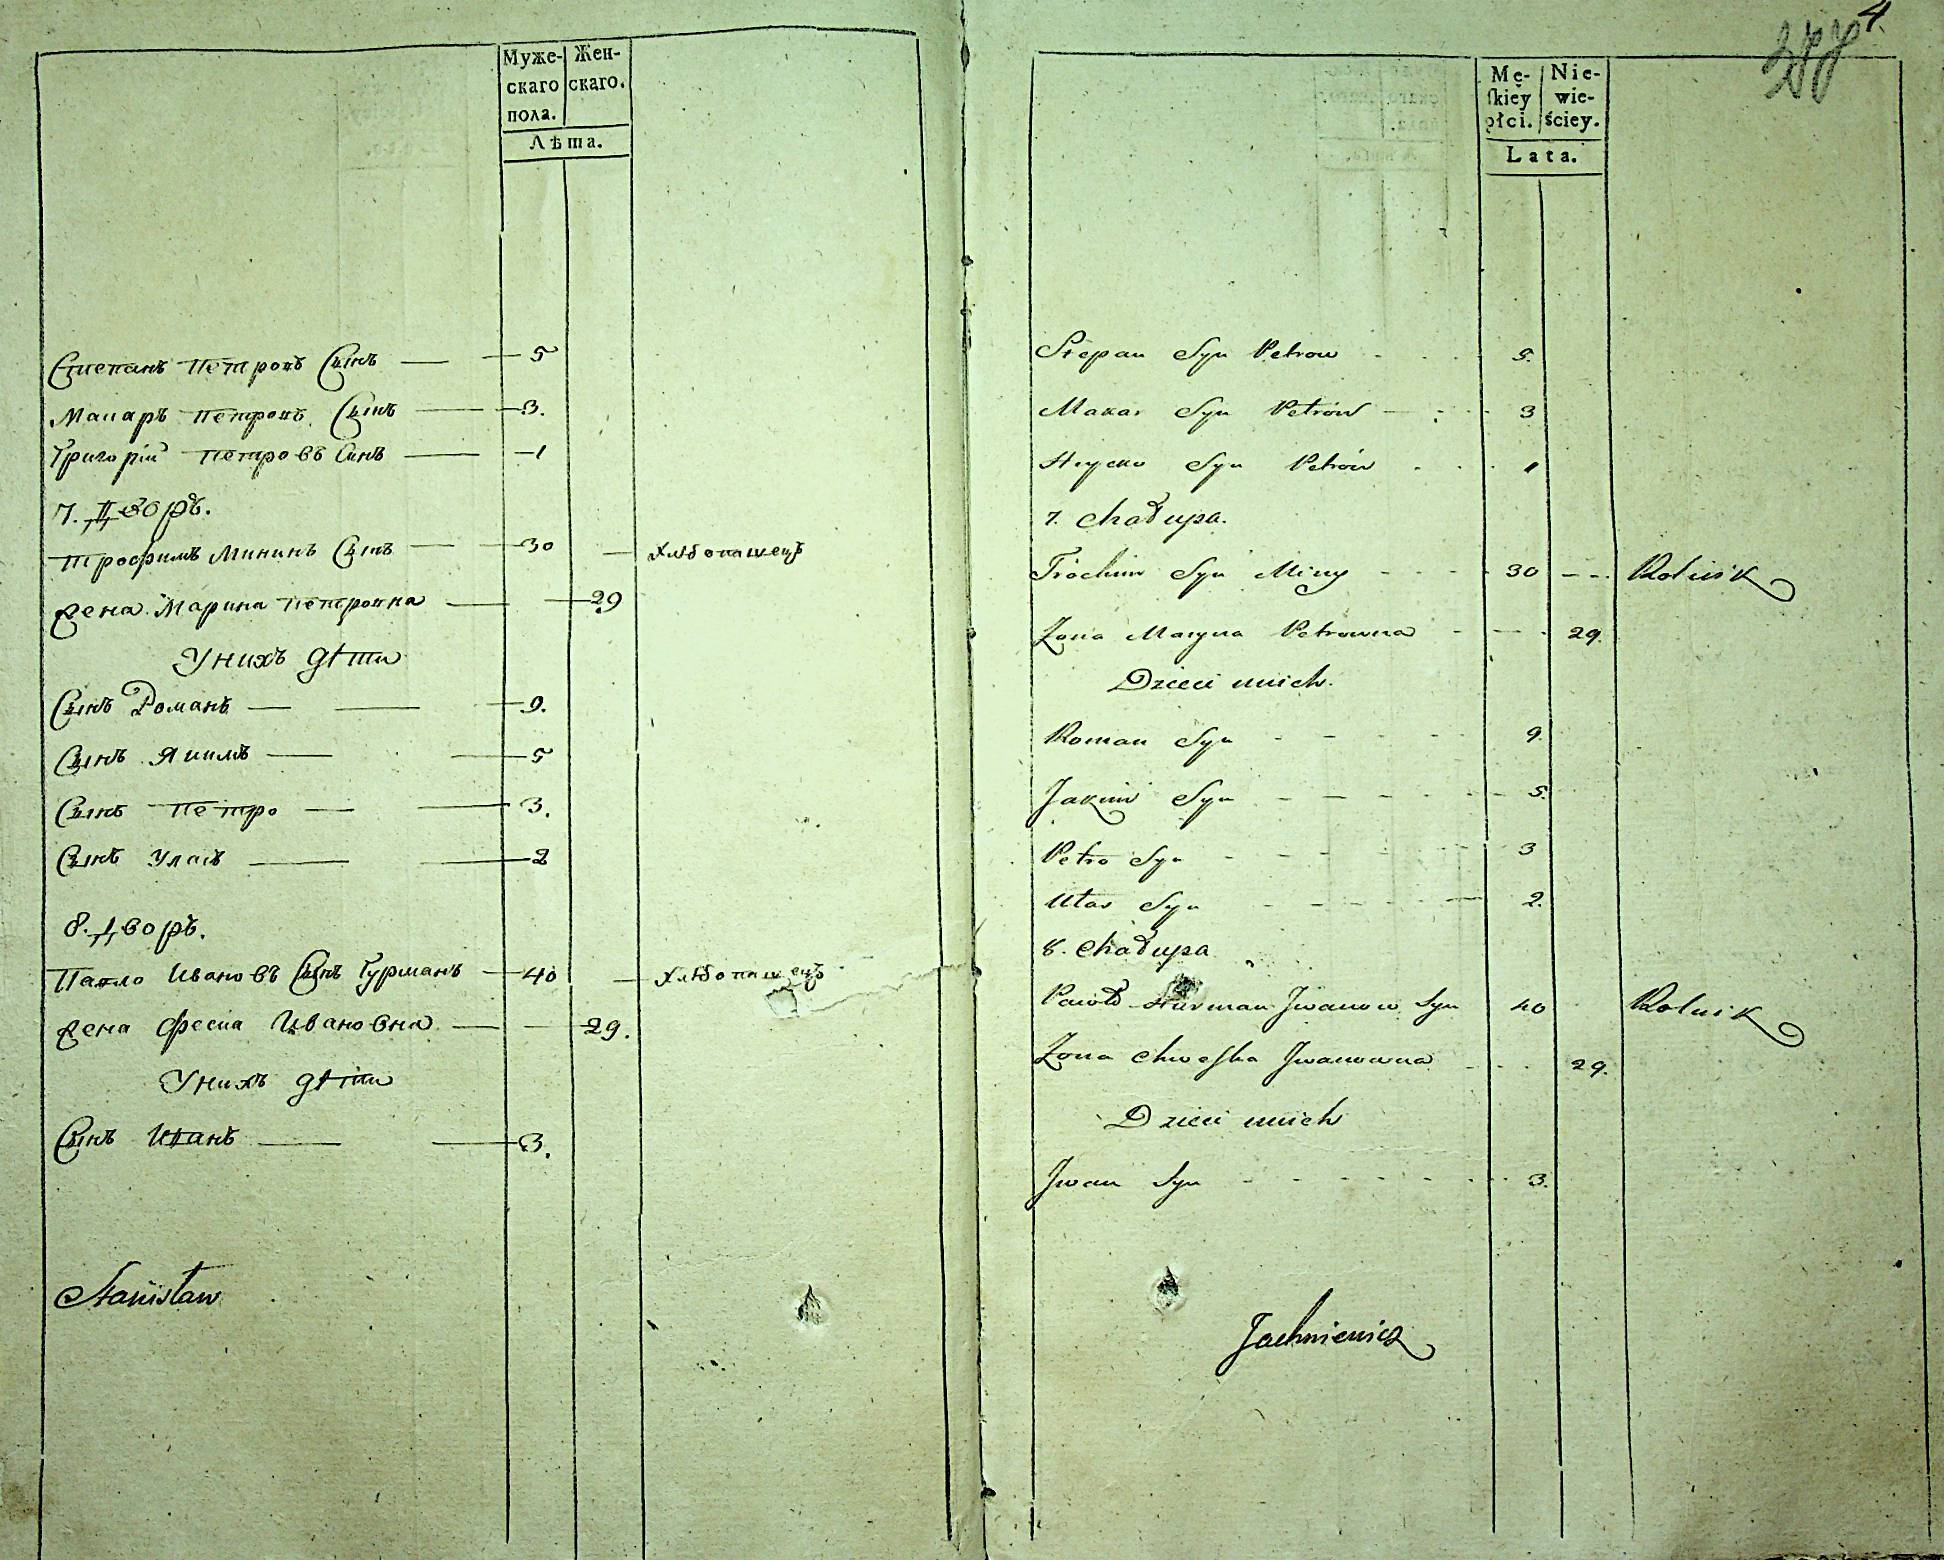 Муже-
скаго
пола.
Жен-
скаго.
Лѣта.
Степанъ Петровъ Сынъ 5
Макаръ Петровъ Сынъ 3.
Григорій Петровъ Синъ 1
7. Дворъ.
Трофимъ Мининъ Сынъ 30 Хлѣбопашецъ
Жена Марина Петровна 29
Унихъ дѣти
Сынъ Романъ 9.
Сынъ Якимъ 5
Сынъ Петро 3.
Сынъ Уласъ 2
8. Дворъ.
Павло Ивановъ Сынъ Гурманъ 40 Хлѣбопашецъ
Жена Феска Ивановна 29.
Унихъ дѣти
Сынъ Иванъ 3.
Stanisław
4.
Mę-
skiey
płci.
Nie-
wie-
ściey.
Lata.
Stepan Syn Petrow 5.
Makar Syn Petrów 3
Hrycko Syn Petrów 1
7. Chałupa.
Trochim Syn Miny 30 Rolnik
Zona Maryna Petrowna 29.
Dzieci unich.
Roman Syn 9.
Jakim Syn 5.
Petro Syn 3
Ułas Syn 2.
8. Chałupa
Pawło Hurman Jwanow Syn 40 Rolnik
Zona Chweska Jwanowna 29.
Dzieci unich
Jwan Syn 3.
Jachniewicz